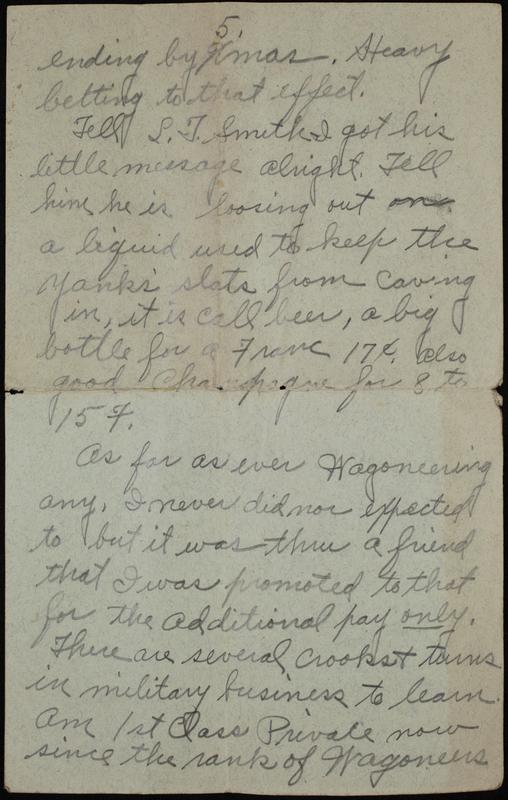 5.
ending by Xmas. Heavy
betting to that effect.
Tell L. T. Smith I got his
little message alright. Tell
him he is loosing out on
a liquid used to keep the
Yanks slats from caving
in, it is call beer, a big
bottle for a Franc 17¢. also
good Champagne for 8 to
15 F.
As far as ever Wagoneering
any, I never did nor expected
to but it was thru a friend
that I was promoted to that
for the additional pay only.
There are several crooks & turns
in military business to learn.
Am 1st Class Private now
since the rank of Wagoneers